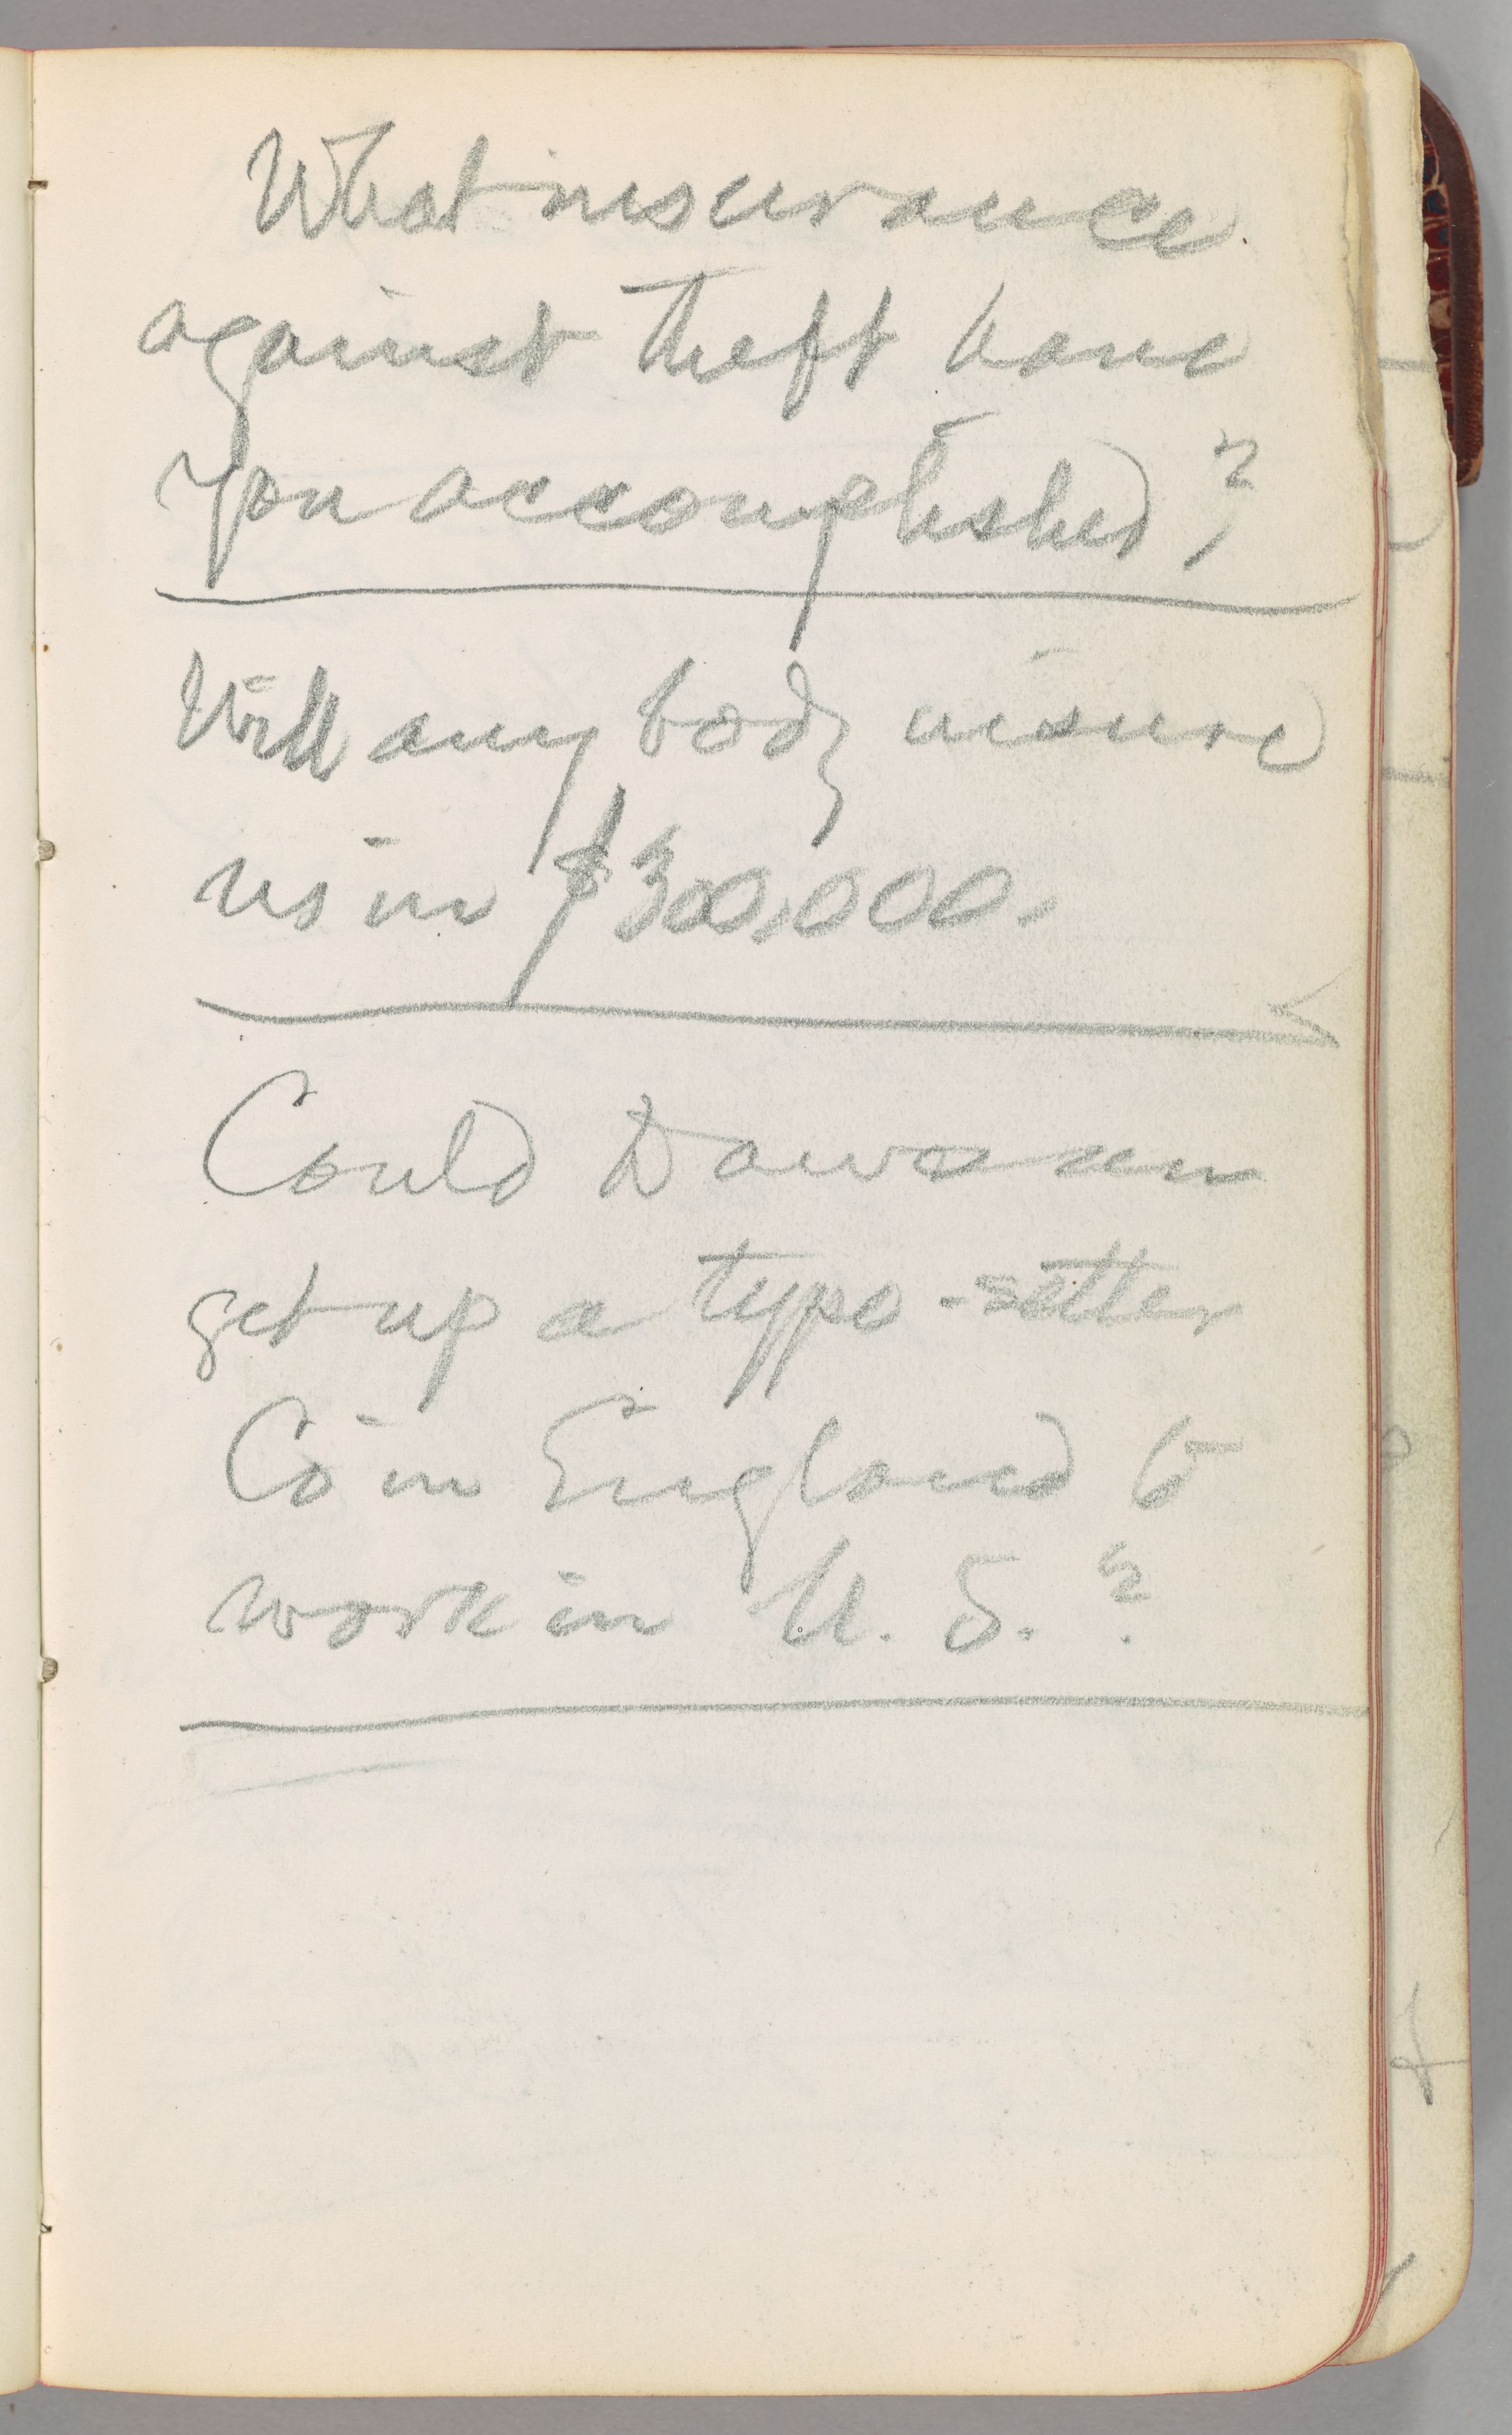 What insurance
against theft have
you accomplished?
Will any body insure
us in $300,000.
Could Dawson
get up a type-setter
Co in England to
work in U. S.?